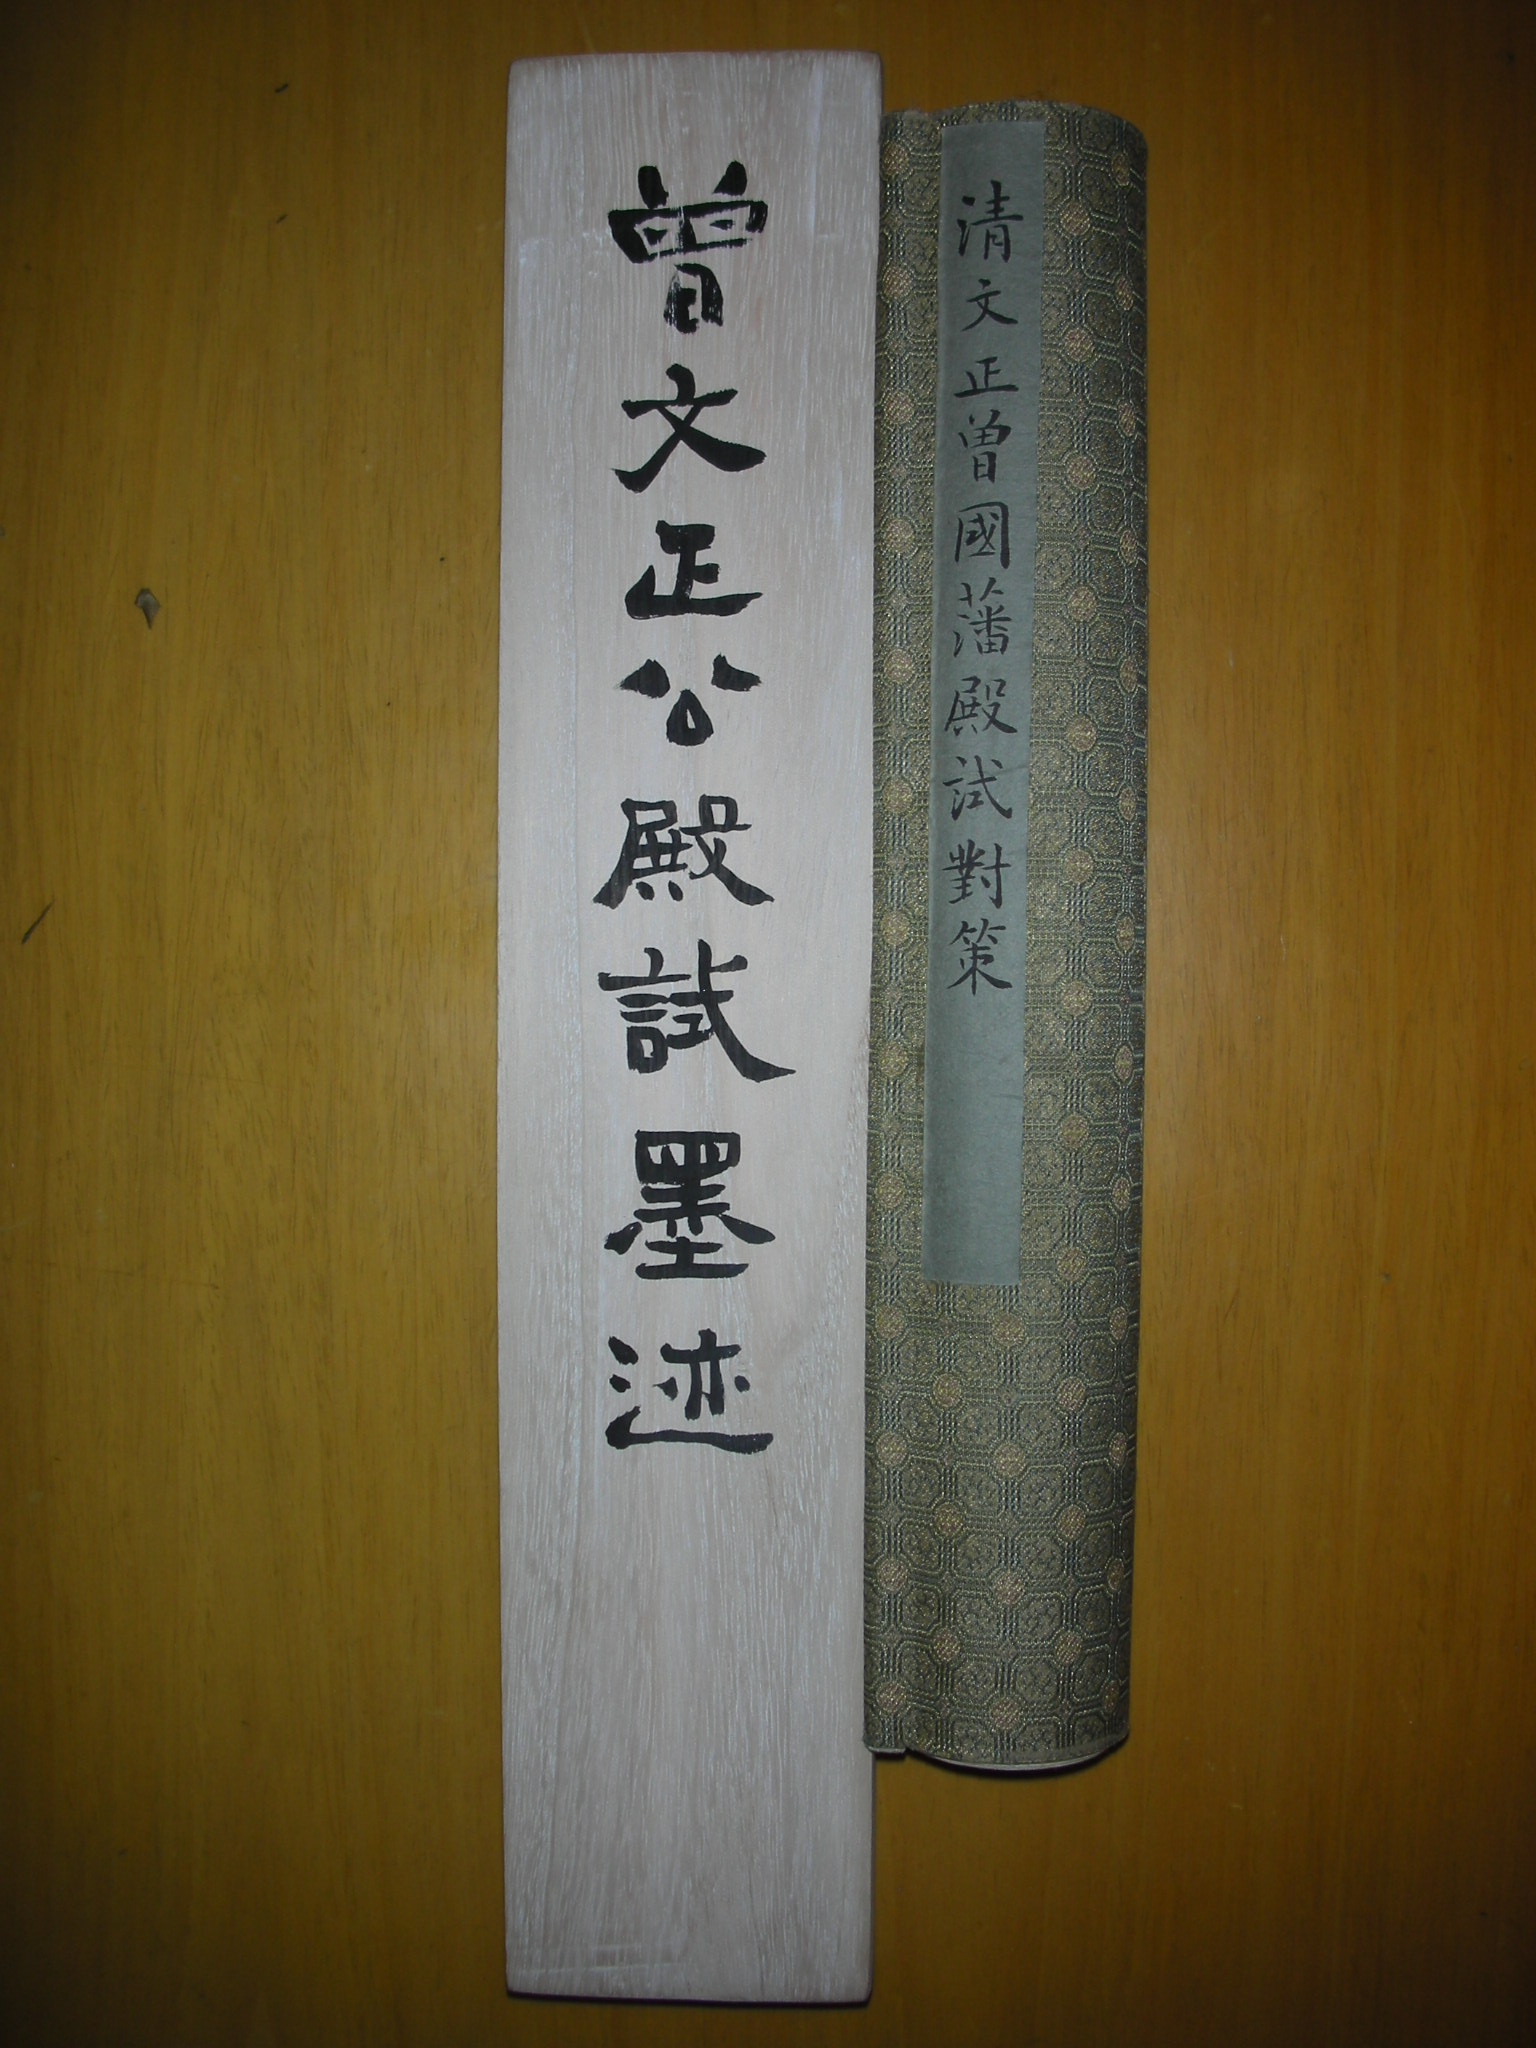 清文正曽國藩殿試對策
曽文正公殿試墨迹